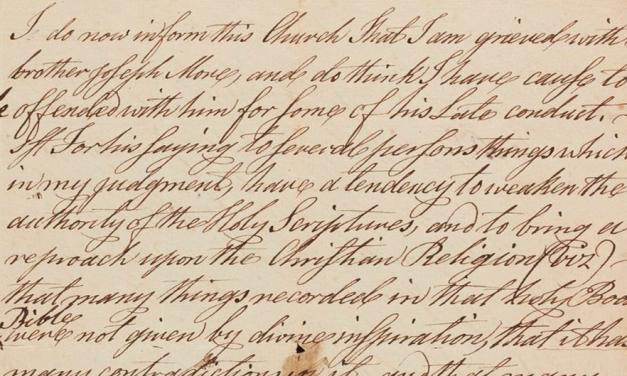 I do now inform this Church that I am grieved with
brother Joseph More, and do think I have cause to
be offended with him for some of his Late conduct. -
1st For his saying to several persons things which
in my judgment, have a tendency to weaken the
authority of the Holy Scriptures, and to bring a
reproach upon the Christian Religion (viz) -
that many things recorded in that holy Boo
Bible
were not given by divine inspiration, that it has
many contradictions in it, and that many